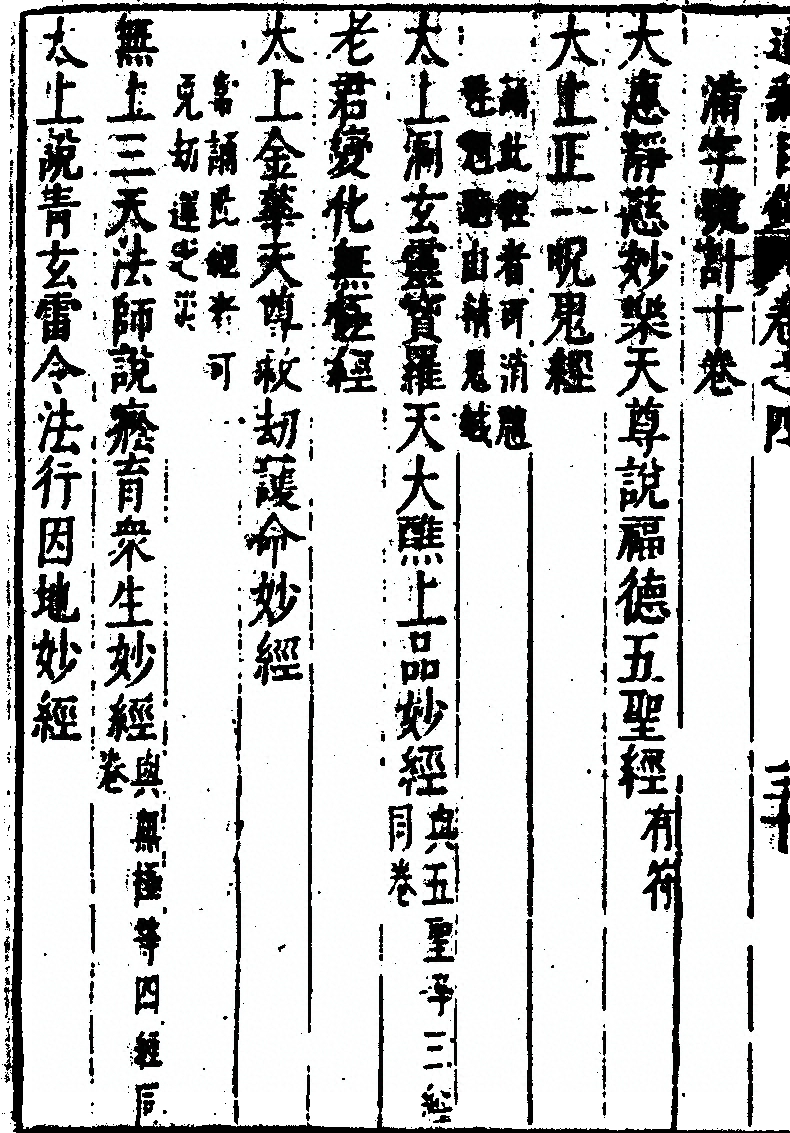 卷之四
滿字號計十卷
太惠靜慈妙樂天尊說福德五聖經有符
太上正一呪鬼經
誦此經者可消
由精鬼
太上洞玄靈寶羅天大醮上品妙經與五聖等三經同卷
老君變化無極經
太上金華天尊救劫護命妙經
誦此經者可
免劫運之災
無上三天法師說廕育衆生妙經與無極等四經同卷
太上說青玄雷令法行因地妙經